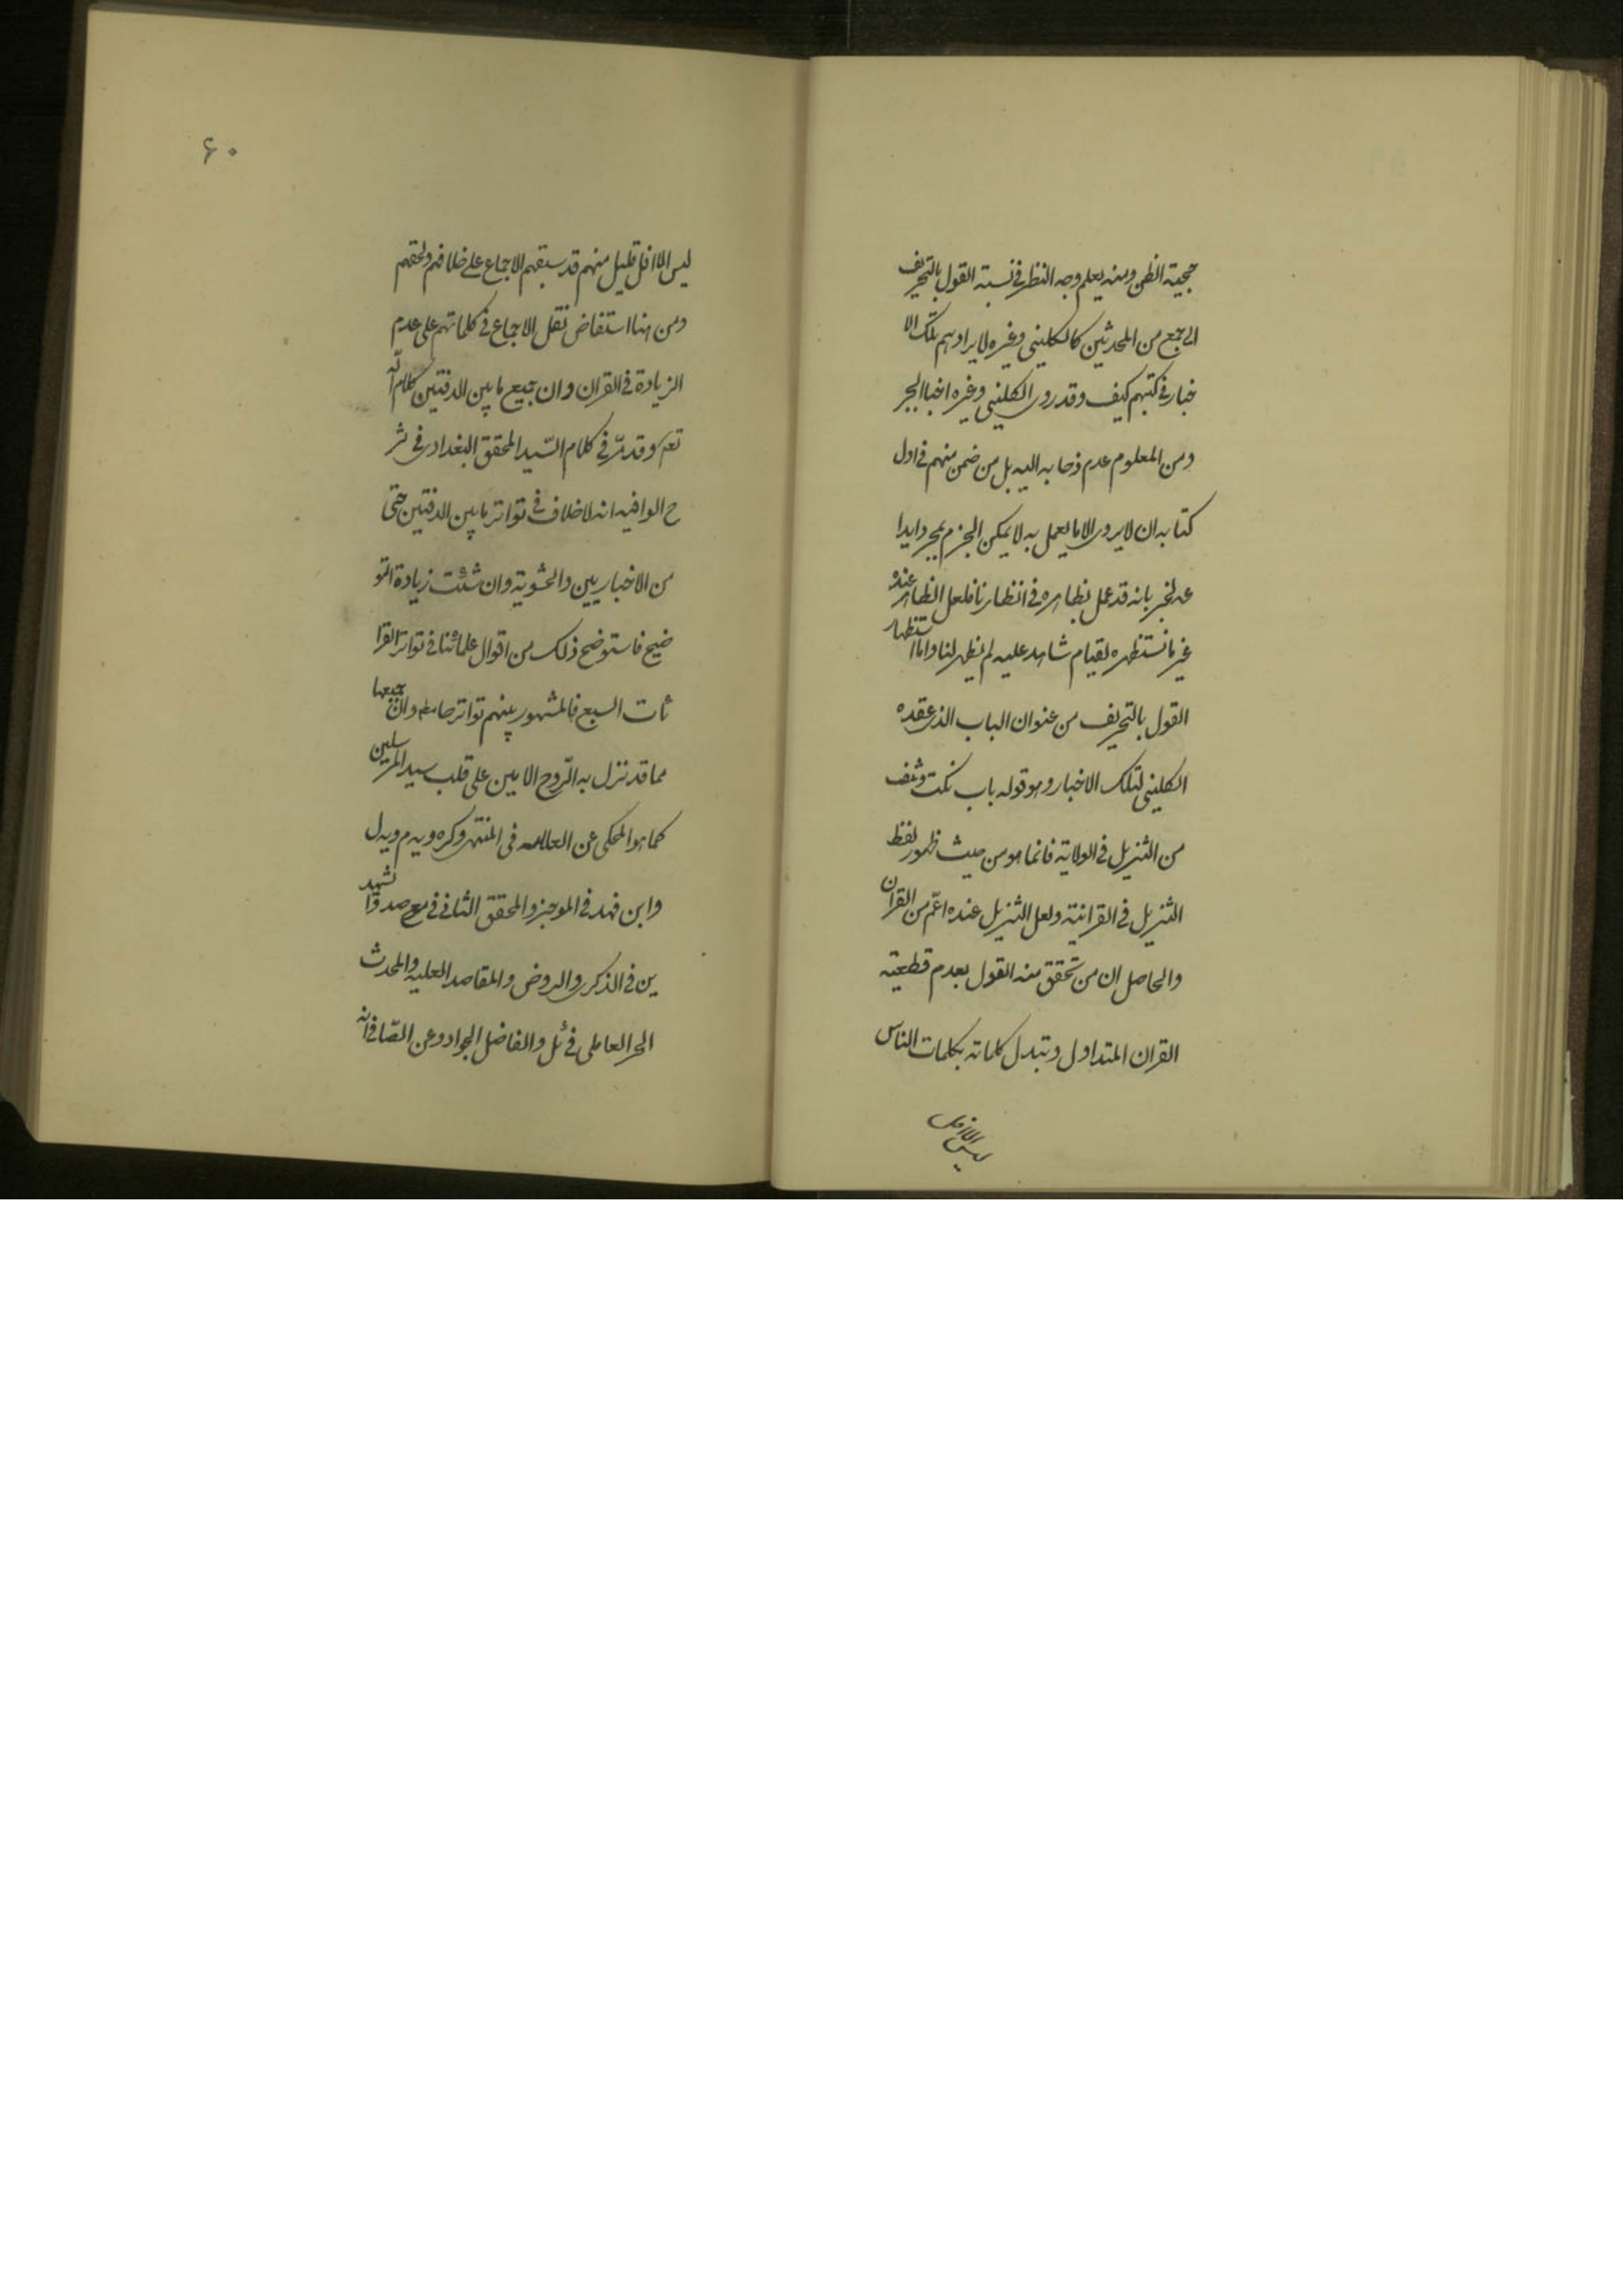 حجية الظن ومنه يعلم وجه النظر في نسبة القول بالتحريف
الى جمع من المحدثين كالكليني وغيره لايرادهم تلك الا
خبار في كتبهم كيف وقد روى الكليني وغيره اخبار الجبر
ومن المعلوم عدم ذهابه اليه بل من ضمن منهم في اول
كتابه ان لا يروى الا ما يعمل به لا يمكن الجزم بمجرد ايرا
ده لخبر بانه قد عمل بظاهره في انظارنا فلعل الظاهر عنده
غير ما نستظهره لقيام شاهد عليه لم يظهر لنا واما استظهار
القول بالتحريف من عنوان الباب الذى عقده
الكليني لتلك الاخبار وهو قوله باب نكت ونتف
من التنزيل في الولاية فانما هو من حيث ظهور لفظ
التنزيل في القرانية ولعل التنزيل عنده اعمّ من القران
والحاصل ان من تحقق منه القول بعدم قطعية
القران المتداول وتبدل كلماته بكلمات الناس
ليس الا اقل
۶۰
ليس الا اقل قليل منهم قد سبقهم الاجماع على خلافهم ولحقهم
ومن هنا استفاض نقل الاجماع في كلماتهم على عدم
الزيادة في القران وان جميع ما بين الدفتين كلام الله
تعم وقد مرّ في كلام السّيد المحقق البغدادى في شر
ح الوافيه انه لا خلاف في تواتر ما بين الدفتين حتى
من الاخباريين والحشوية وان شئت زيادة التو
ضيح فاستوضح ذلك من اقوال علمائنا في تواتر القرا
ئات السبع فالمشهور بينهم تواترها وان جميعها
مما قد نزل به الرّوح الامين على قلب سيد المرسلين
كما هو المحكى عن العلامه في المنتهى وكره
وابن فهد في الموجز والمحقق الثاني في مع صد والشهيد
ين في الذكرى والروض والمقاصد العليه والمحدث
الحر العاملى في ئل والفاضل الجواد وعن الصّافى انه